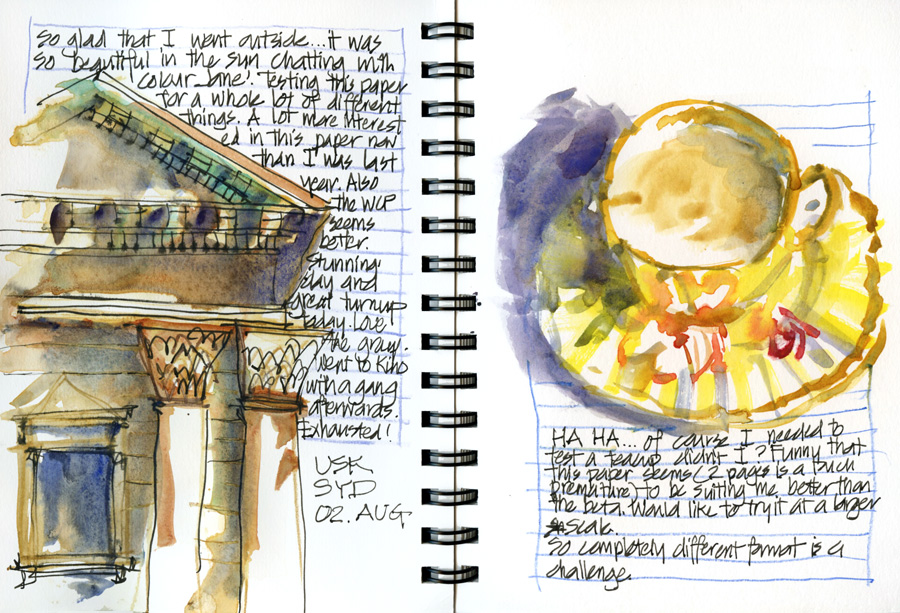 So glad that I went outside... it was
so beautiful in the sun chatting with
colour Jane! Testing this paper
for a whole lot of different
things. A lot more interest
ed in this paper now
than I was last
year. Also
the WCP
seems
better.
Stunning
day and
great turnup
today. Love
the gray!
Went to Kino
with a gang
afterwards.
Exhausted!
USK
SYD
02. AUG
HA HA... of course I needed to
test a teacup didn't I? Funny that
this paper seems (2 pages is a
premature) to be suiting me better than
the beta. Would like to try it at a larger
scale.
So completely different format is a
challenge.